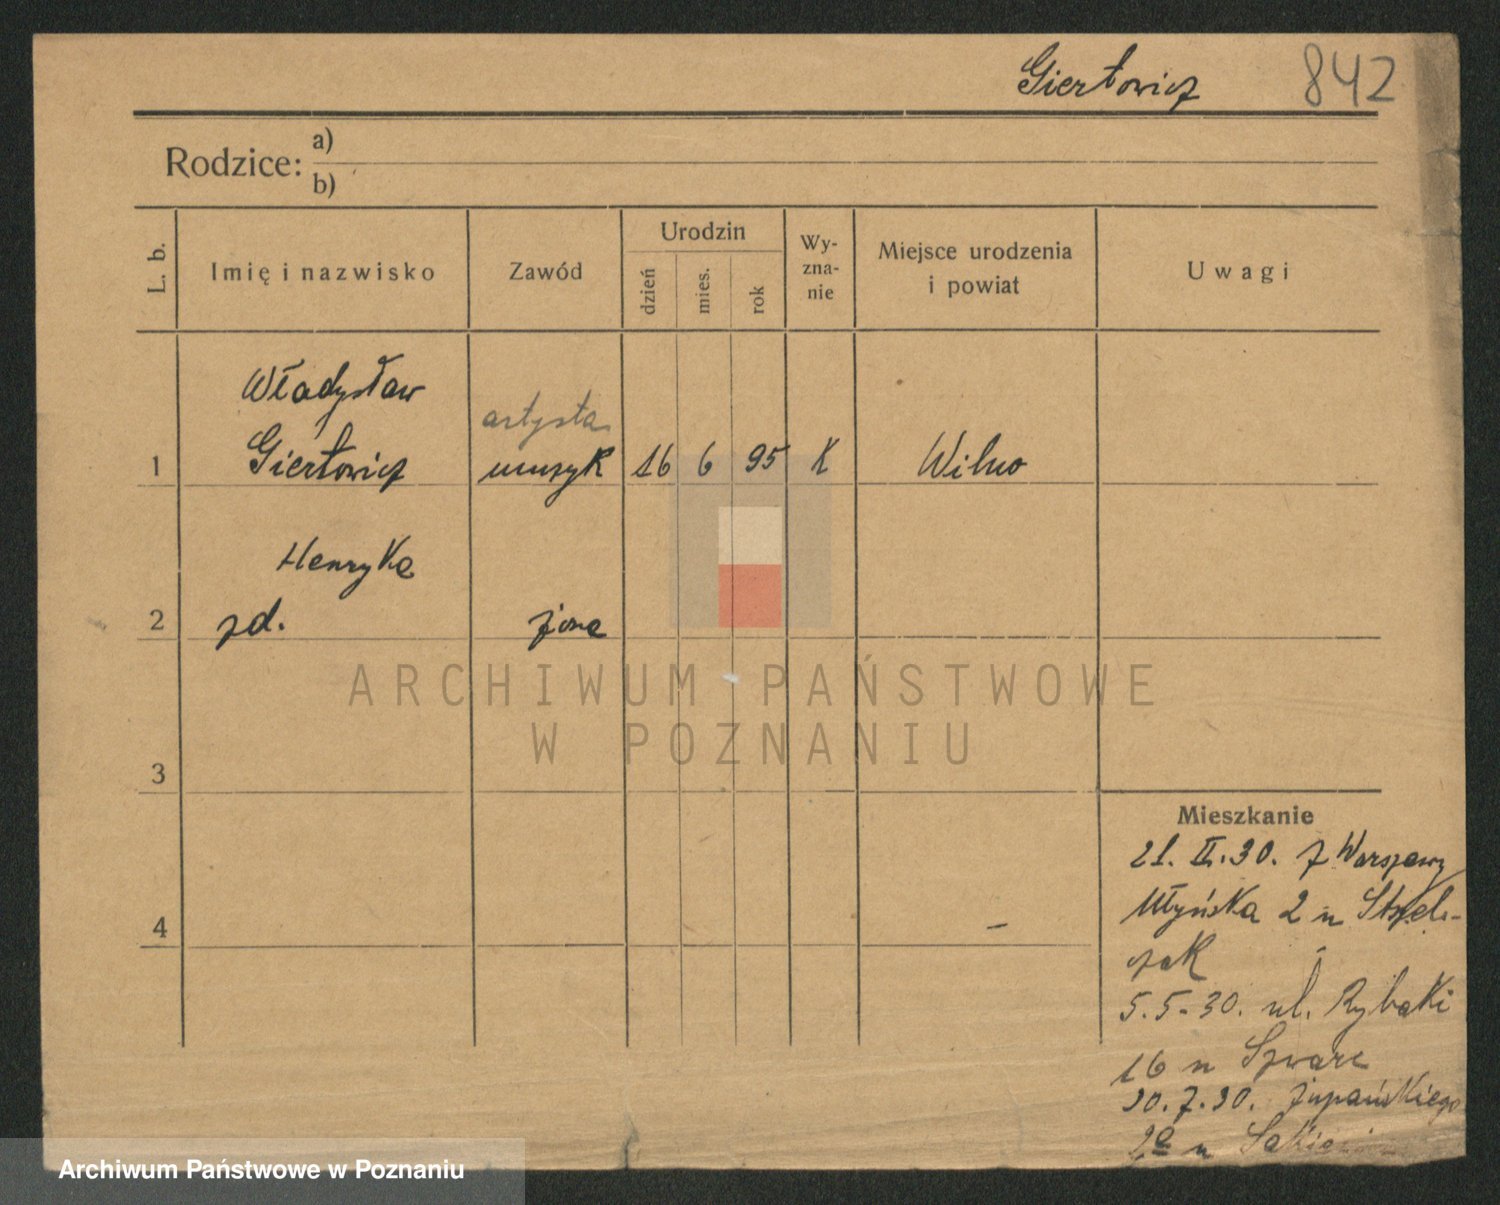 Giertowicz 842
Rodzice: a)
b)
L. b. Imię i nazwisko Zawód Urodzin dzień mies. rok Wy-zna-nie Miejsce urodzenia i powiat Uwagi
Władysław
artysta
1 Giertowicz muzyk 16 6 95 K Wilno
Henryka
2 zd. żona
3
4
Mieszkanie
21. II. 30. z Warszawy
Młyńska 2 u Stzel-
czak
5. 5. 30. ul. Rybaki
16 u Szwarc
30. 7. 30. Żupańskiego
2a u
ARCHIWUM PAŃSTWOWE
W POZNANIU
Archiwum Państwowe w Poznaniu